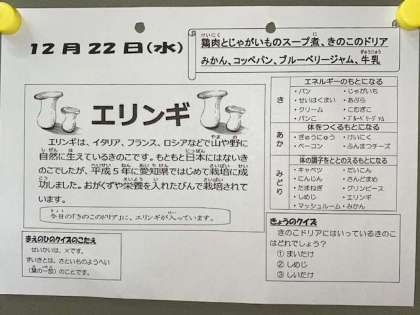 12月22日(水)
鶏肉とじゃがいものスープ煮、きのこのドリア
みかん、コッペパン、ブルーベリージャム、牛乳
エリンギ
エリンギは、イタリア、フランス、ロシアなどで山や野に
自然に生えているきのこです。もともと日本にはないき
のこでしたが、平成5年に愛知県ではじめて栽培に成
功しました。おがくずや栄養を入れたびんで栽培されて
います。
今日の「きのこのドリア」に、エリンギが入っています。
まえのひのクイズのこたえ
せいかいは、×です。
ずいきとは、さといものようへい
(葉の一部)のことです。
エネルギーのもとになる
き
・パン ・じゃがいも
・せいはくまい ・あぶら
・クリーム ・こめぎこ
・パンこ ・ブルーベリージャム
体をつくるもとになる
あか
・ぎゅうにゅう ・けいにく
・ベーコン ・ふんまつチーズ
体の調子をととのえるもとになる
みどり
・キャベツ ・だいこん
・にんじん ・さんどまめ
・たまねぎ ・グリンピース
・しめじ ・エリンギ
・マッシュルーム ・みかん
きょうのクイズ
きのこドリアにはいっているきのこ
はどれでしょう?
① まいたけ
② しめじ
③ しいたけ